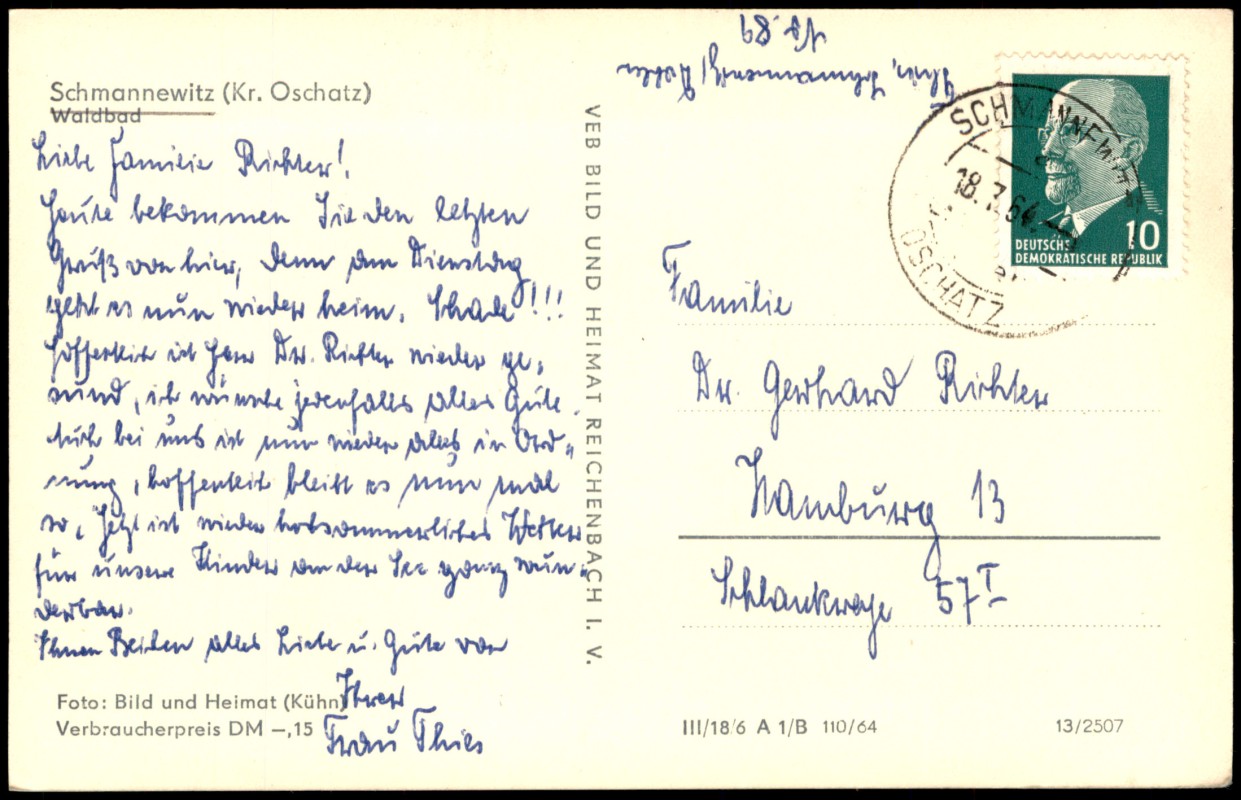 Schmannewitz (Kr. Oschatz)
Waldbad
Liebe Familie Richter!
Heute bekommen Sie den letzten
Gruß von hier, denn am Dienstag
geht es nun wieder heim. Schade!!!
Hoffentlich ist Herr Dr. Richter wieder ge-
sund, ich wünsche jedenfalls alles Gute.
Auch bei uns ist nun wieder alles in Ord-
nung, hoffentlich bleibt es nun mal
so. Jetzt ist wieder hochsommerliches Wetter
für unsere Kinder an der See ganz wun-
derbar.
Ihnen Beiden alles Liebe u. Gute von
Ihrer
Frau Thies
Foto: Bild und Heimat (Kühn)
Verbraucherpreis DM –,15
VEB BILD UND HEIMAT REICHENBACH I. V.
Thies, Schmannewitz,
No 89
SCHMANNEWITZ
18.7.64
OSCHATZ
10
DEUTSCHE
DEMOKRATISCHE REPUBLIK
Familie
Dr. Gerhard Richter
Hamburg 13
Schlankreye 57 I
III/18/6 A 1/B 110/64
13/2507